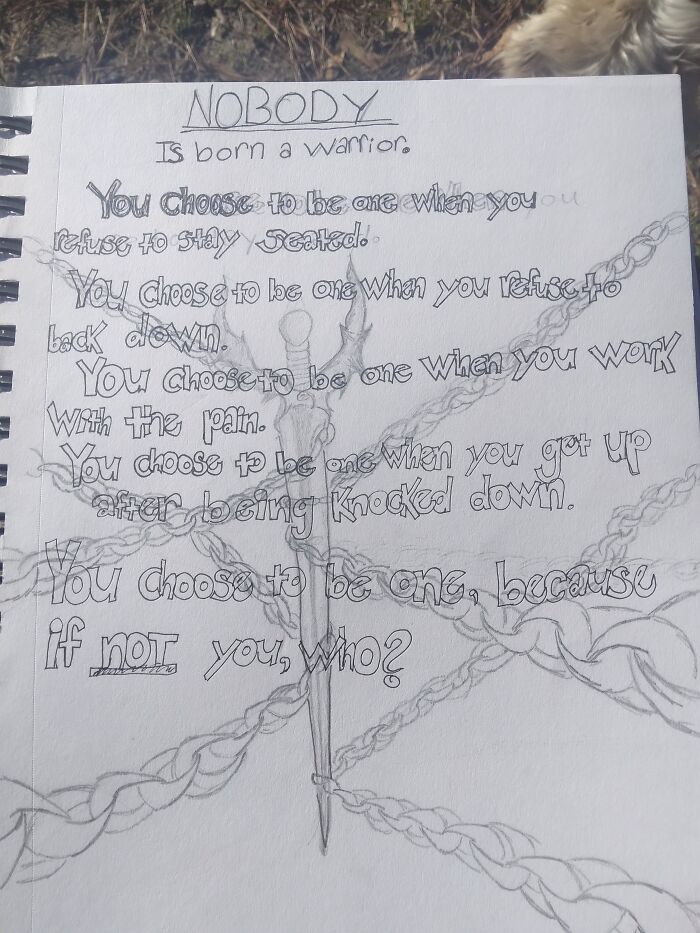 NOBODY
Is born a warrior.
You choose to be one when you
refuse to stay seated.
You choose to be one when you refuse to
back down.
You choose to be one when you work
with the pain.
You choose to be one when you get up
after being knocked down.
You choose to be one, because
if not you, who?